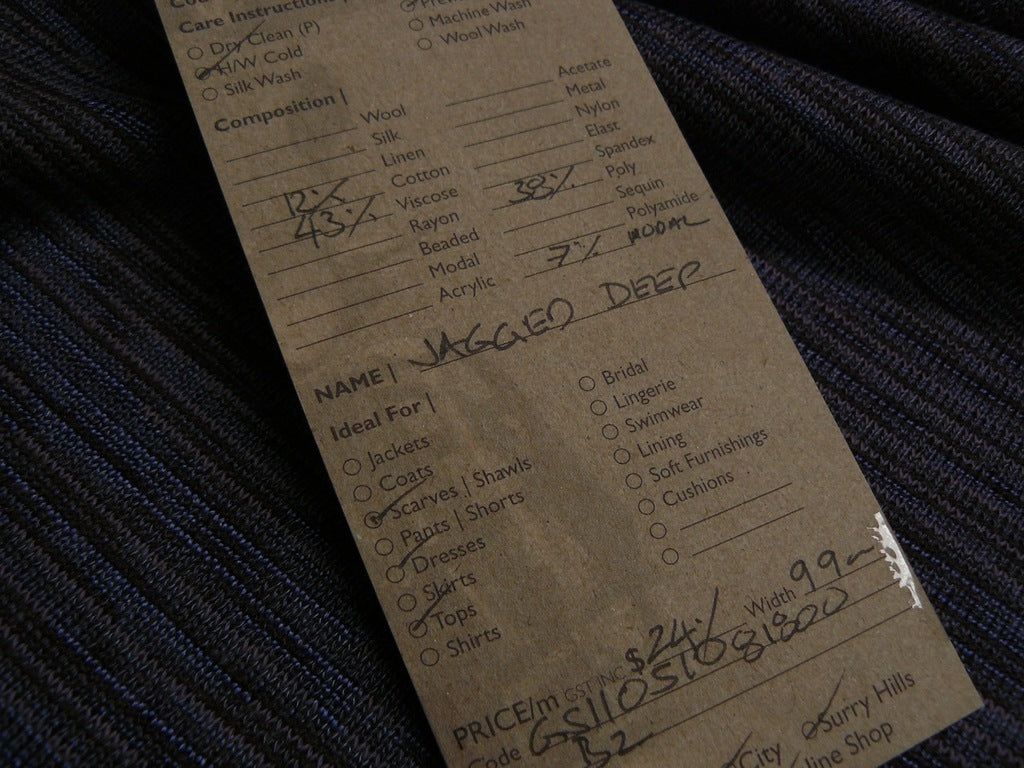 Care Instructions |
Dry Clean (P)
H/W Cold
Silk Wash
Machine Wash
Wool Wash
Composition |
Wool
Silk
Linen
12% Cotton
43% Viscose
Rayon
Beaded
Modal
Acrylic
Acetate
Metal
Nylon
Elast
Spandex
38% Poly
Sequin
Polyamide
7% MODAL
NAME | JAGGED DEEP
Ideal For |
Jackets
Coats
Scarves | Shawls
Pants | Shorts
Dresses
Skirts
Tops
Shirts
Bridal
Lingerie
Swimwear
Lining
Soft Furnishings
Cushions
PRICE/m GST INC $24/ Width 99-
Code GS11051081800
B2
City Surry Hills
line Shop